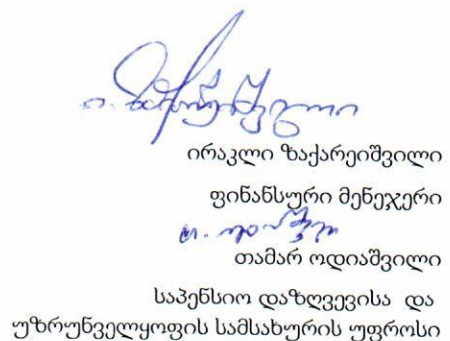 ირაკლი ზაქარეიშვილი
ფინანსური მენეჯერი
თამარ ოდიაშვილი
საპენსიო დაზღვევისა და
უზრუნველყოფის სამსახურის უფროსი